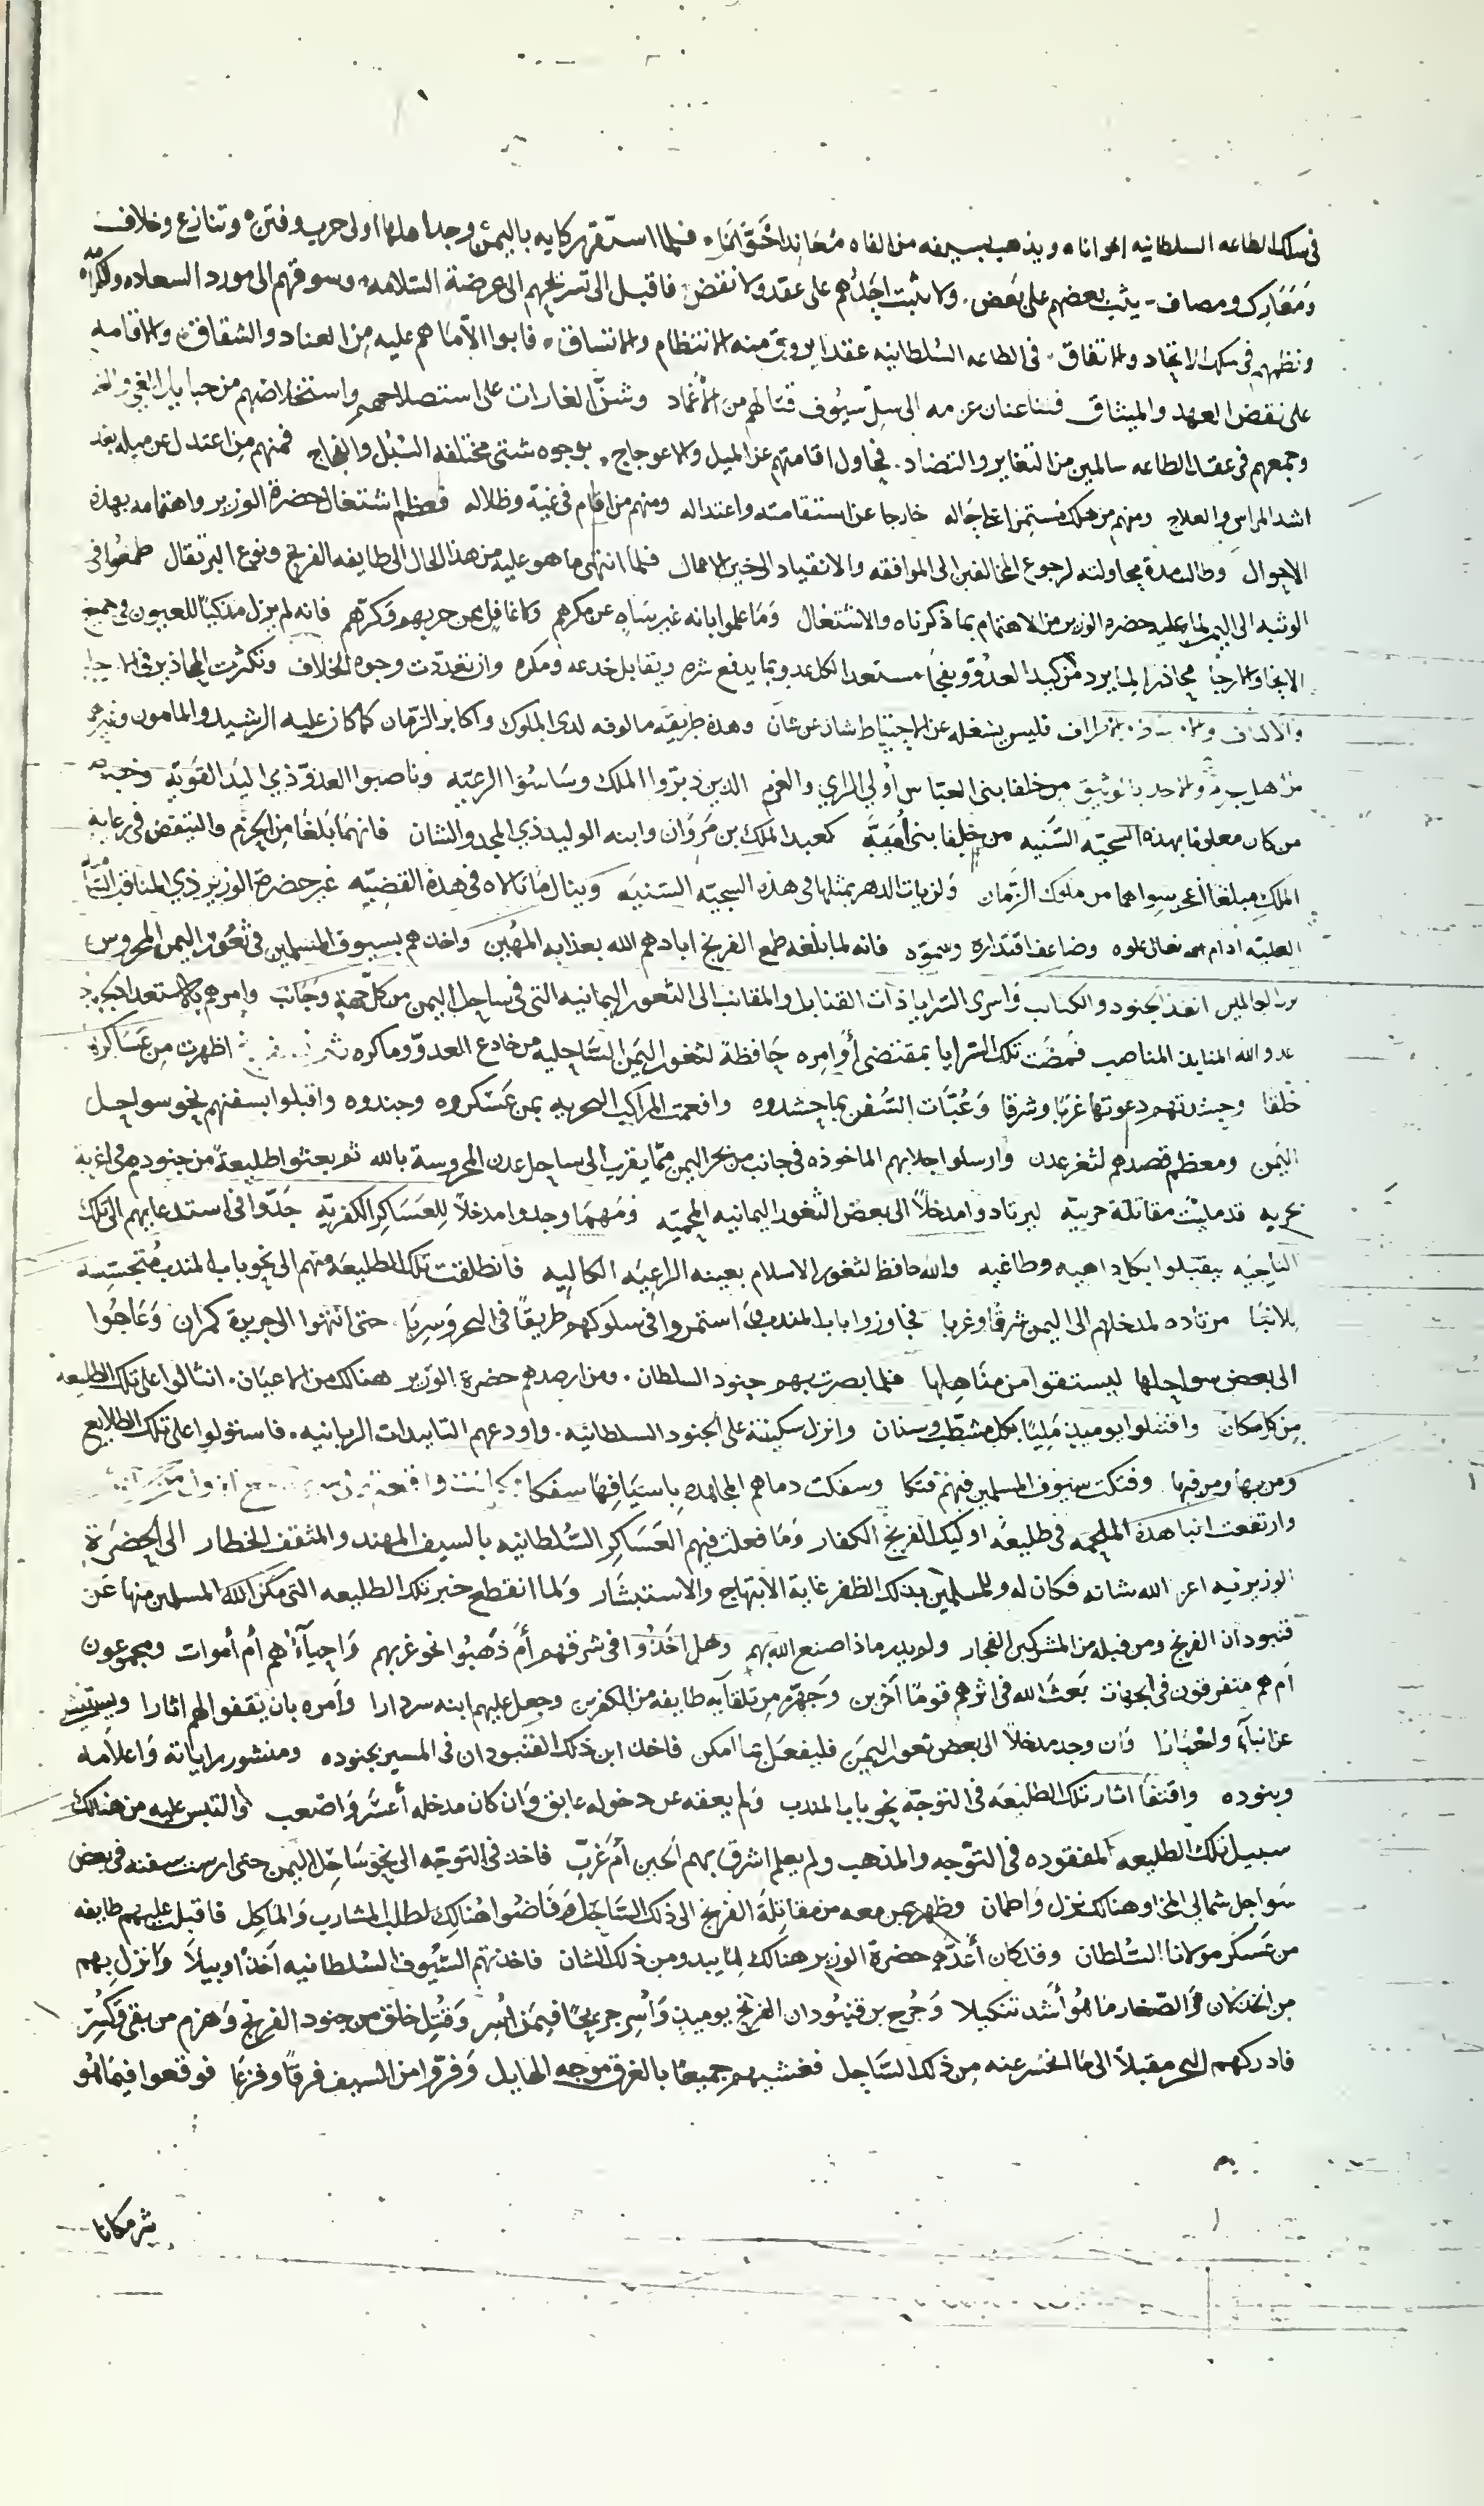 في سلك الطاعه السلطانيه اعوانا ه ويذهب بسيفه من الفاه معاندا خوّانا ه فلما استقر ركابه باليمن وجد اهلها اولى حرب وفتن ه وتنازع وخلاف
ومعارك ومصاف يثب بعضهم على بعض ولا يثبت احدهم على عقد ولا نقض فاقبل الى تسريحهم الى عرضة السلامه وسوقهم الى مورد السعاده والكرامه
ونظمهم في سلك الاتحاد والاتفاق في الطاعه السلطانيه عقدا يروق منه الانتظام والاتساق ه فابوا الا ما هم عليه من العناد والشقاق والاقامه
على نقض العهد والميثاق فثنا عنان عزمه الى سل سيوف قتالهم من الاغماد وشن الغارات على استصلاحهم واستخلاصهم من حبايل الغي
وجمعهم في عقد الطاعه سالمين من التغاير والتضاد فحاول اقامتهم عن الميل والاعوجاج بوجوه شتى مختلفه السبل والفجاج فمنهم من اعتدل عن ميله بعد
اشد المراس والعلاج ومنهم من هلك مستمرا على حاله خارجا عن استقامته واعتداله ومنهم من اقام في غيه وظلاله فعظم اشتغال حضرة الوزير واهتمامه بهذه
الاحوال وطالت مدة محاولته لرجوع المخالفين الى الموافقه والانقياد الى خير الاعمال فلما انتهى ما هو عليه من هذا الحال الى طايفه الفرنج ونوع البرتقال طمعوا في
الوثبه الى اليمن لما عليه حضره الوزير من الاهتمام بما ذكرناه والاشتغال وما علموا بانه غير ساه عن مكرهم ولا غافل عن حربهم وكرهم فانه لم يزل مذكيا للعيون في جميع
الانحا والارجا محاذرا لما يرد من كيد العدو ويفجا مستعدا لكل عدو بما يدفع شره ويقابل خدعه ومكره وان تعددت وجوه الخلاف وتكثرت المحاذير في الارجا
والاكناف فليس يشغله عن الاحتياط شان عن شان وهذه طريقه مالوفه لدى الملوك واكابر الزمان كما كان عليه الرشيد والمامون وغيرهم
من خلفا بني العباس اولي الراي والعزم الذين دبروا الملك وساسوا الرعيه وناصبوا العدو ذي اليد القويه
من كان معلوما بهذه السجيه السنيه من خلفا بني اميه كعبد الملك بن مروان وابنه الوليد ذي المجد والشان فانهما بلغا من الحزم والتيقض في رعايه
الملك مبلغا اعجز سواهما من ملوك الزمان ولم يات الدهر بمثلها في هذه السجيه السنيه وينال ما نالاه في هذه القضيه غير حضرة الوزير ذي المناقب
العليه ادام الله تعالى علوه وضاعف اقتداره وسموه فانه لما بلغه طمع الفرنج ابادهم الله بعذابه المهين واخذهم بسيوف المسلمين في ثغور اليمن المحروس
انفذ الجنود والكتايب واسرى السرايا ذات القنابل والمقانب الى الثغور اليمانيه التي في ساحل اليمن من كل جهة وجانب وامرهم بالاستعداد
عدو الله المنابذ المناصب فمضت تلك السرايا بمقتضى اوامره حافظة لثغور اليمن الساحليه من خادع العدو وماكره اظهرت من عساكره
خلقا وحشدتهم دعوتها غربا وشرقا وعبات السفن بما حشدوه وافعمت المراكب البحريه بمن عسكروه وجندوه واقبلوا بسفنهم نحو سواحل
اليمن ومعظم قصدهم لثغر عدن وارسلوا جلابهم الماخوذه في جانب من بحر اليمن مما يقرب الى ساحل عدن المحروسة بالله ثم بعثوا طليعة من جنودهم في اغربة
بحريه قد مليت مقاتلة حربيه ليرتادوا مدخلا الى بعض الثغور اليمانيه المحميه ومهما وجدوا مدخلا للعساكر الكفريه جدوا في استدعايهم الى تلك
الناحيه ليقبلوا بكل داهيه وطاغيه والله حافظ لثغور الاسلام بعينه الراعيه الكاليه فانطلقت تلك الطليعه منهم الى نحو باب المندب متجسسه
للانبا مرتاده لمدخلهم الى اليمن شرقا وغربا فجاوزوا باب المندب واستمروا في سلوكهم طريقا في البحر وسربا حتى انتهوا الى جزيرة كمران وعاجوا
الى بعض سواحلها ليستقوا من مناهلها فلما بصرت بهم جنود السلطان ومن ارصدهم حضرة الوزير هنالك من الاعيان انثالوا على تلك الطليعه
من كل مكان واقتتلوا يوميذ مليا بكل مشطب وسنان وانزل سكينته على الجنود السلطانيه واودعهم التاييدات الربانيه فاستولوا على تلك الطلايع
ومن بها ومن فيها وفتكت سيوف المسلمين فيهم فتكا وسفكت دماهم المجاهده باسيافها سفكا
وارتفعت انبا هذه الملحمه في طليعه اوليك الفرنج الكفار وما فعلت فيهم العساكر السلطانيه بالسيف المهند والمثقف الخطار الى الحضرة
الوزيريه اعز الله شانه فكان له وللمسلمين بذلك الظفر غاية الابتهاج والاستبشار ولما انقطع خبر تلك الطليعه التي مكن الله المسلمين منها عن
قنبودان الفرنج ومن قبله من المشركين الفجار ولم يدر ماذا صنع الله بهم وهل اخذوا في شرقهم ام ذهبوا نحو غربهم واحيآء هم ام أموات ومجموعون
ام هم متفرقون في الجهات بعث الله في اثرهم قوما آخرين وجهز من تلقايه طايفه من الكفرين وجعل عليهم ابنه سردارا وامره بان يقفوا لهم اثارا
عن انبآء واخبارا وان وجد مدخلا الى بعض ثغور اليمن فليفعل بما امكن فاخذ ابن ذلك القنبودان في المسير بجنوده ومنشور راياته واعلامه
وبنوده واقتفا اثار تلك الطليعه في التوجه نحو باب المندب ولم يعقه عن دخوله عايق وان كان مدخله أعسر واصعب والتبس عليه من هنالك
سبيل تلك الطليعه المفقوده في التوجه والمذهب ولم يعلم اشرق بهم الحين ام غرب فاخذ في التوجه الى نحو ساحل اليمن حتى ارست سفنه في بعض
سواحل شمالي المخا وهنالك نزل واطمان وظهر بمن معه من مقاتلة الفرنج الى ذلك الساحل وفاضوا هنالك لطلب المشارب والماكل فاقبلت عليهم طايفه
من عسكر مولانا السلطان وقد كان أعده حضرة الوزير هنالك لما يبدو من ذلك الشان فاخذتهم السيوف السلطانيه اخذا وبيلا وانزل بهم
من الخذلان والصغار ما هو أشد تنكيلا وجرح بن قنبودان الفرنج يوميذ واسر جريحا فيمن اسر وقتل خلق من جنود الفرنج وهزم من بقي وكسر
فادركهم البحر مقبلا الى ما انحسر عنه من ذلك الساحل فغشيهم جميعا بالغرق موجه الهايل وفروا من السيف فرقا وفزعا فوقعوا فيما هو
شر مكانا